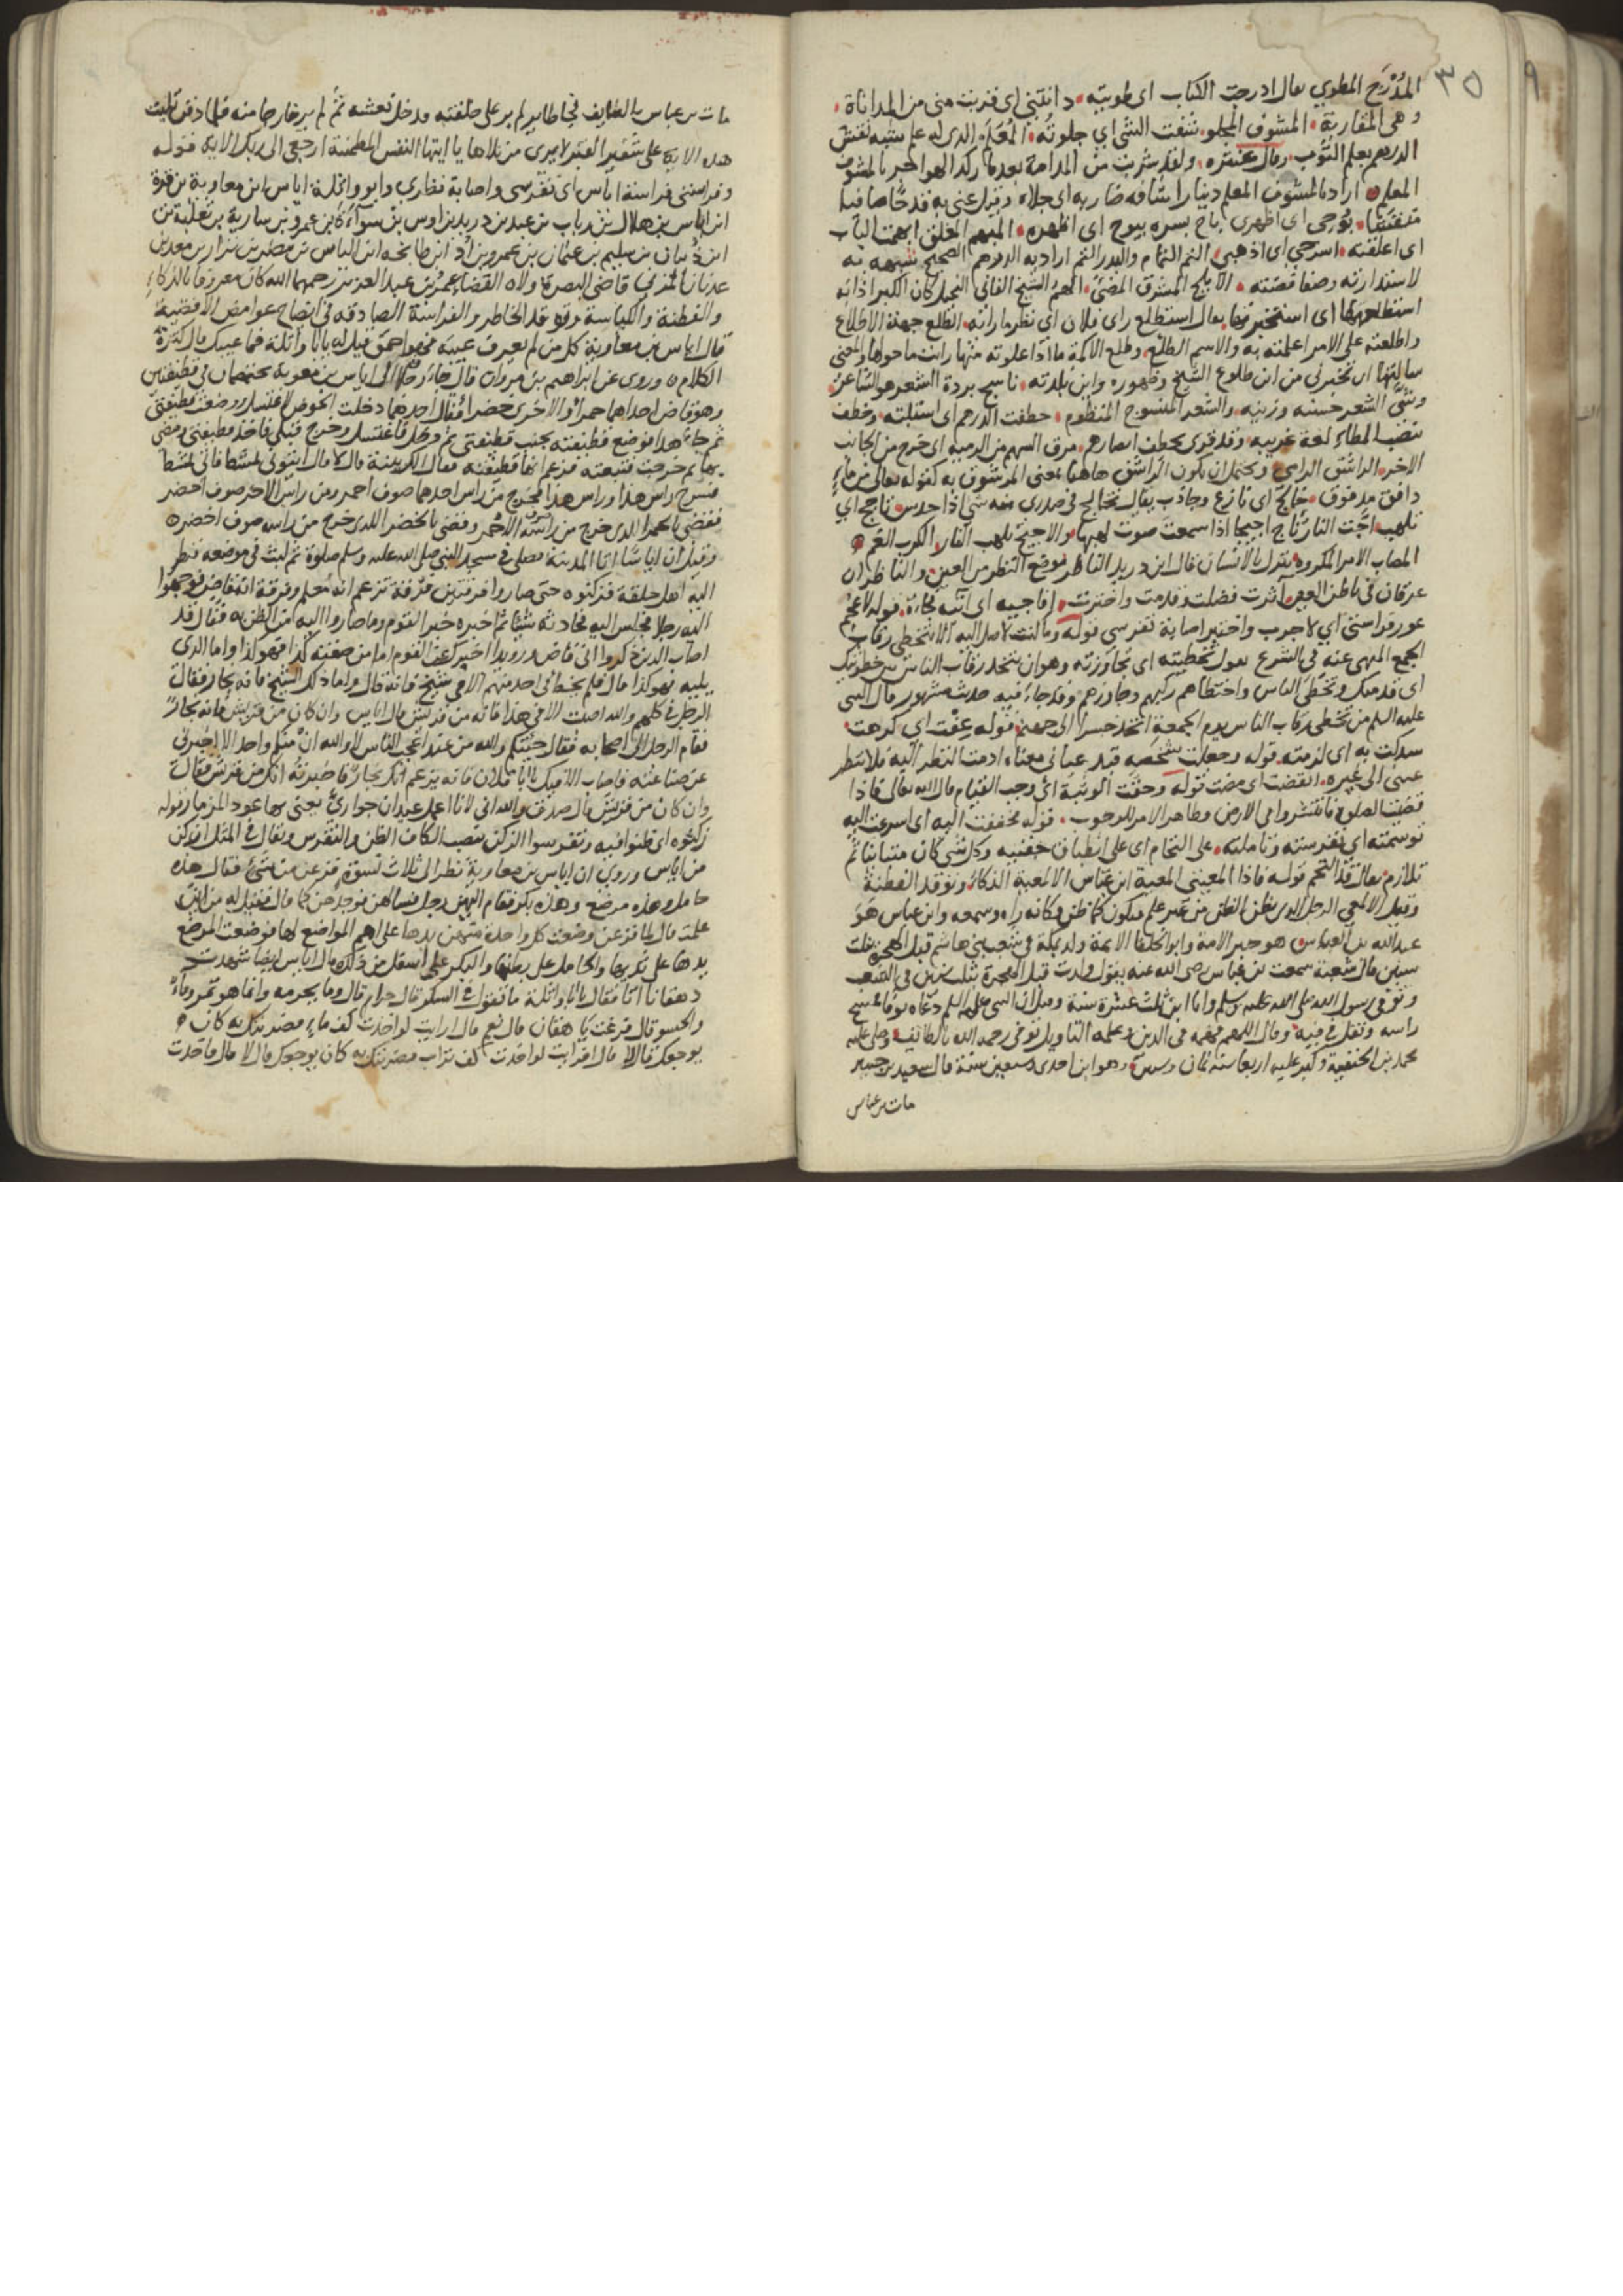 ٣٥
٩
المُدْرَج المطوي يقال ادرجت الكتاب اى طويته دانتنى اى قربت منى من المداناة
وهى المقاربة المشوف المجلو شفت الشئ اي جلوته المُعْلَم الذى له علم ينبيه نقش
الدرهم بعلم الثوب وقال عنتره ولقد شربت من المدامة بعدما ركد الهواجر بالمشوف
المعلم اراد بالمشوف المعلم دينارا شافه ضاربه اى جلاه وقيل عنى به قدحا صافيا
منقشا بُوحى اى اظهرى باح بسره يبوح اى اظهره المبهم المغلق ابهمت الباب
اى اغلقته اسرحي اى اذهبي التم التمام والبدر التم اراد به الدرهم الصحيح شبهه به
لاستدارته وصفا فضته الابلج المشرق المضئ الهم الشيخ الفاني
استطلعتها اى استخبرتها يقال استطلع راى فلان اي نظر ما رايه الطلع جهة الاطلاع
واطلعته على الامر اعلمته به والاسم الطلع وطلع الاكمة ما اذا علوته منها رايت ما حولها والمعنى
سالتها ان تخبرنى من اين طلوع الشيخ وظهوره واين بلدته ناسج بردة الشعر هو الشاعر
وشى الشعر حسنه وزينه والشعر المنسوج المنظوم خطفت الدرهم اى استلبته وخطف
بنصب الطاء لغة غريبه وقد قرى يخطف ابصارهم مرق السهم من الرميه اى خرج من الجانب
الاخر الراشق الرامي ويحتمل ان يكون الراشق هاهنا بمعنى المرشوق به كقوله تعالى من ماء
دافق مدفوق خالج اى نازع وجاذب يقال تخالج فى صدرى منه شئ اذا حدس تاجج اي
تلهب اجّت النار تاج اجيجا اذا سمعت صوت لهبها والاجيج تلهب النار الكرب الغم
المصاب الامر المكروه ينزل بالانسان قال ابن دريد الناظر موضع النظر من العين والناظران
عرقان فى باطن العين آثرت فضلت وقدمت واخترت افاجيه اى اتيه فجاءة قوله لاعجم
عود فراستى اي لاجرب واختبر اصابة تفرسي قوله وما كنت لاصل اليه الا بتخطى رقاب
الجمع المنهى عنه فى الشرع يقول تخطيته اى تجاوزته وهو ان تتخذ رقاب الناس بين خطوتيك
اى قدميك وتخطى الناس واختطاهم ركبهم وجاوزهم وقد جاء فيه حديث مشهور قال النبى
عليه السلم من تخطى رقاب الناس يوم الجمعة اتخذ جسرا الى جهنم قوله عِفْت اي كرهت
سدكت به اى لزمته قوله وجعلت شخصه قيد عيانى معناه ادمت النظر اليه فلا تنظر
عينى الى غيره انقضت اى مضت قوله وحقت الوثبة اى وجب القيام قال الله تعالى فاذا
قضيت الصلوة فانتشروا فى الارض وظاهر الامر للوجوب قوله فخففت اليه اى اسرعت اليه
توسمته اى تفرسته وتاملته على التحام اى على انطباق جفنيه وكل شئ كان متباينا ثم
تلازم يقال قد التحم قوله فاذا المعيتى المعية ابن عباس الالمعية الذكاء وتوقد الفطنة
وقيل الالمعى الرجل الذى يظن الظن من غير علم فيكون كما ظن فكانه راه وسمعه وابن عباس هو
عبدالله بن العباس هو حبر الامة وابو الخلفا الايمة ولد بمكة فى شعب بنى هاشم قبل الهجرة بثلث
سنين قال شعبة سمعت ابن عباس رضى الله عنه يقول ولدت قبل الهجرة بثلث سنين فى الشعب
وتوفى رسول الله صلى الله عليه وسلم وانا ابن ثلث عشرة سنة وقيل ان النبى عليه السلم دعاه يوما فمسح
راسه وتفل في فيه وقال اللهم فقهه فى الدين وعلمه التاويل توفى رحمه الله بالطايف وصلى عليه
محمد بن الحنفية وكبر عليه اربعا سنة ثمان وستين وهو ابن احدى وسبعين سنة قال سعيد بن جبير
مات بن عباس
مات بن عباس بالطايف فجا طاير لم ير على خلقته فدخل نعشه ثم لم ير خارجا منه فلما دفن تليت
هذه الاية على شفير القبر لا يدرى من تلاها يا ايتها النفس المطمئنة ارجعى الى ربك الاية قوله
وفراستى فراسة اياس اى تفرسى واصابة نظاري وابو واثلة اياس ابن معاوية بن قرة
ابن اياس بن هلال بن رباب بن عبيد بن دريد بن اوس بن سواءة بن عمرو بن سارية بن ثعلبة بن
ابن ذبيان بن سليم بن عثمان بن عمرو بن أد ابن طابخه ابن الياس بن مضر بن نزار بن معد بن
عدنان المزني قاضى البصرة ولاه القضاء عمر بن عبد العزيز رحمهما الله كان معروفا بالذكاء
والفطنة والكياسة وتوقد الخاطر والفراسة الصادقه فى ايضاح غوامض الاقضية
قال اياس بن معاوية كل من لم يعرف عيبه فهو احمق فقيل له يا ابا واثلة فما عيبك قال كثرة
الكلام وروى عن ابراهيم بن مروان قال جاء رجلان الى اياس بن معوية يختصمان فى قطيفتين
وهو قاض احداهما حمراء والاخرى خضراء فقال احدهما دخلت الحوض لاغتسل ووضعت قطيفتى
ثم جاء هذا فوضع قطيفته بجنب قطيفتى ثم دخل فاغتسل وخرج قبلى فاخذ قطيفتى ومضى
بها ثم خرجت فتبعته فزعم انها قطيفته فقال الك بينة قال لا قال ايتونى بمشط فاتى بمشط
فسرح راس هذا وراس هذا فخرج من راس احدهما صوف احمر ومن راس الاخر صوف اخضر
فقضى بالحمرا للذى خرج من راسه الاحمر وقضى بالخضرا للذى خرج من راسه صوف اخضر
وقيل ان اياسا اتا المدينة فصلى في مسجد النبى صلى الله عليه وسلم صلوة ثم لبث فى موضعه فنظر
اليه اهل حلقة فتركوه حتى صاروا فرقتين فرقة تزعم انه معلم وفرقة انه قاض فوجهوا
اليه رجلا فجلس اليه فحادثه شيئا ثم اخبره خبر القوم وما صاروا اليه من الظن به فقال قد
اصاب الذين ذكروا انى قاض ورويدا اخبرك عن القوم اما من صفته كذا فهو كذا واما الذى
يليه فهو كذا قال فلم يخط فى احد منهم الا فى شيخ فانه قال واما ذاك الشيخ فانه نجار فقال
الرجل فى كلهم والله اصبت الا فى هذا فانه من قريش قال اياس وان كان من قريش فانه نجار
فقام الرجل الى اصحابه فقال جئتكم والله من عند اعجب الناس لا والله ان منكم واحد الا اخبرنى
عن صناعته واصاب الا فيك يا ابا فلان فانه يزعم انك نجار فاخبرته انك من قريش فقال
وان كان من قريش قال صدق والله انى لانا اعمل عيدان جوارىّ يعنى بها عود المزمار قوله
زكنوه اى ظنوا فيه وتفرسوا الزكن بنصب الكاف الظن والتفرس ويقال فى المثل ازكن
من اياس وروى ان اياس بن معاوية نظر الى ثلاث نسوة فزعن من شئ فقال هذه
حامل وهذه مرضع وهذه بكر فقام اليهن رجل فسالهن فوجدهن كما قال فقيل له من اين
علمت قال لما فزعن وضعت كل واحدة منهن يدها على اهم المواضع لها فوضعت المرضع
يدها على ثديها والحامل على بطنها والبكر على اسفل من ذلك قال اياس ايضا شهدت
دهقانا اتا فقال يا ابا واثلة ما تقول فى السكر قال حرام قال وما يحرمه وانما هو تمر وماء
والحسو قال فرغت يا دهقان قال نعم قال ارايت لو اخذت كف ماء فضربتك به كان
يوجعك قال لا قال افرايت لو اخذت كف تراب فضربتك به كان يوجعك قال لا قال فاخذت